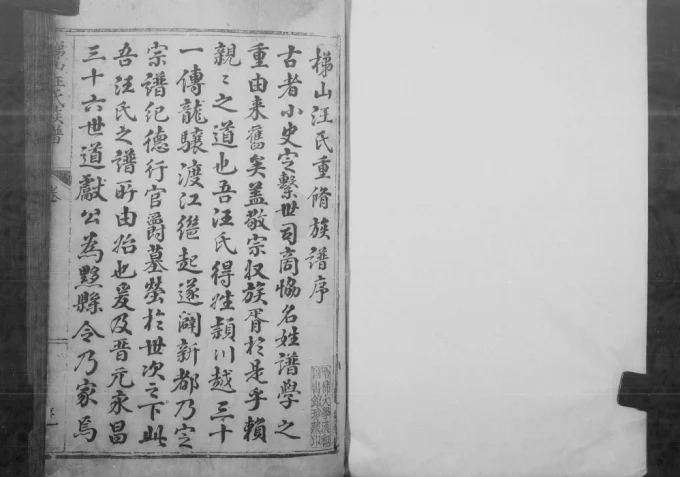 梯山汪氏重脩族譜序
古者小史定繫世司商協名姓譜學之
重由来舊矣盖敬宗収族胥於是乎賴
親〻之道也吾汪氏得姓潁川越三十
一傳龍驤渡江繼起遂闢新都乃定
宗譜紀德行官爵墓塋於世次之下此
吾汪氏之譜所由始也爰及晋元永昌
三十六世道獻公為黟縣令乃家焉
梯山汪氏族譜
卷